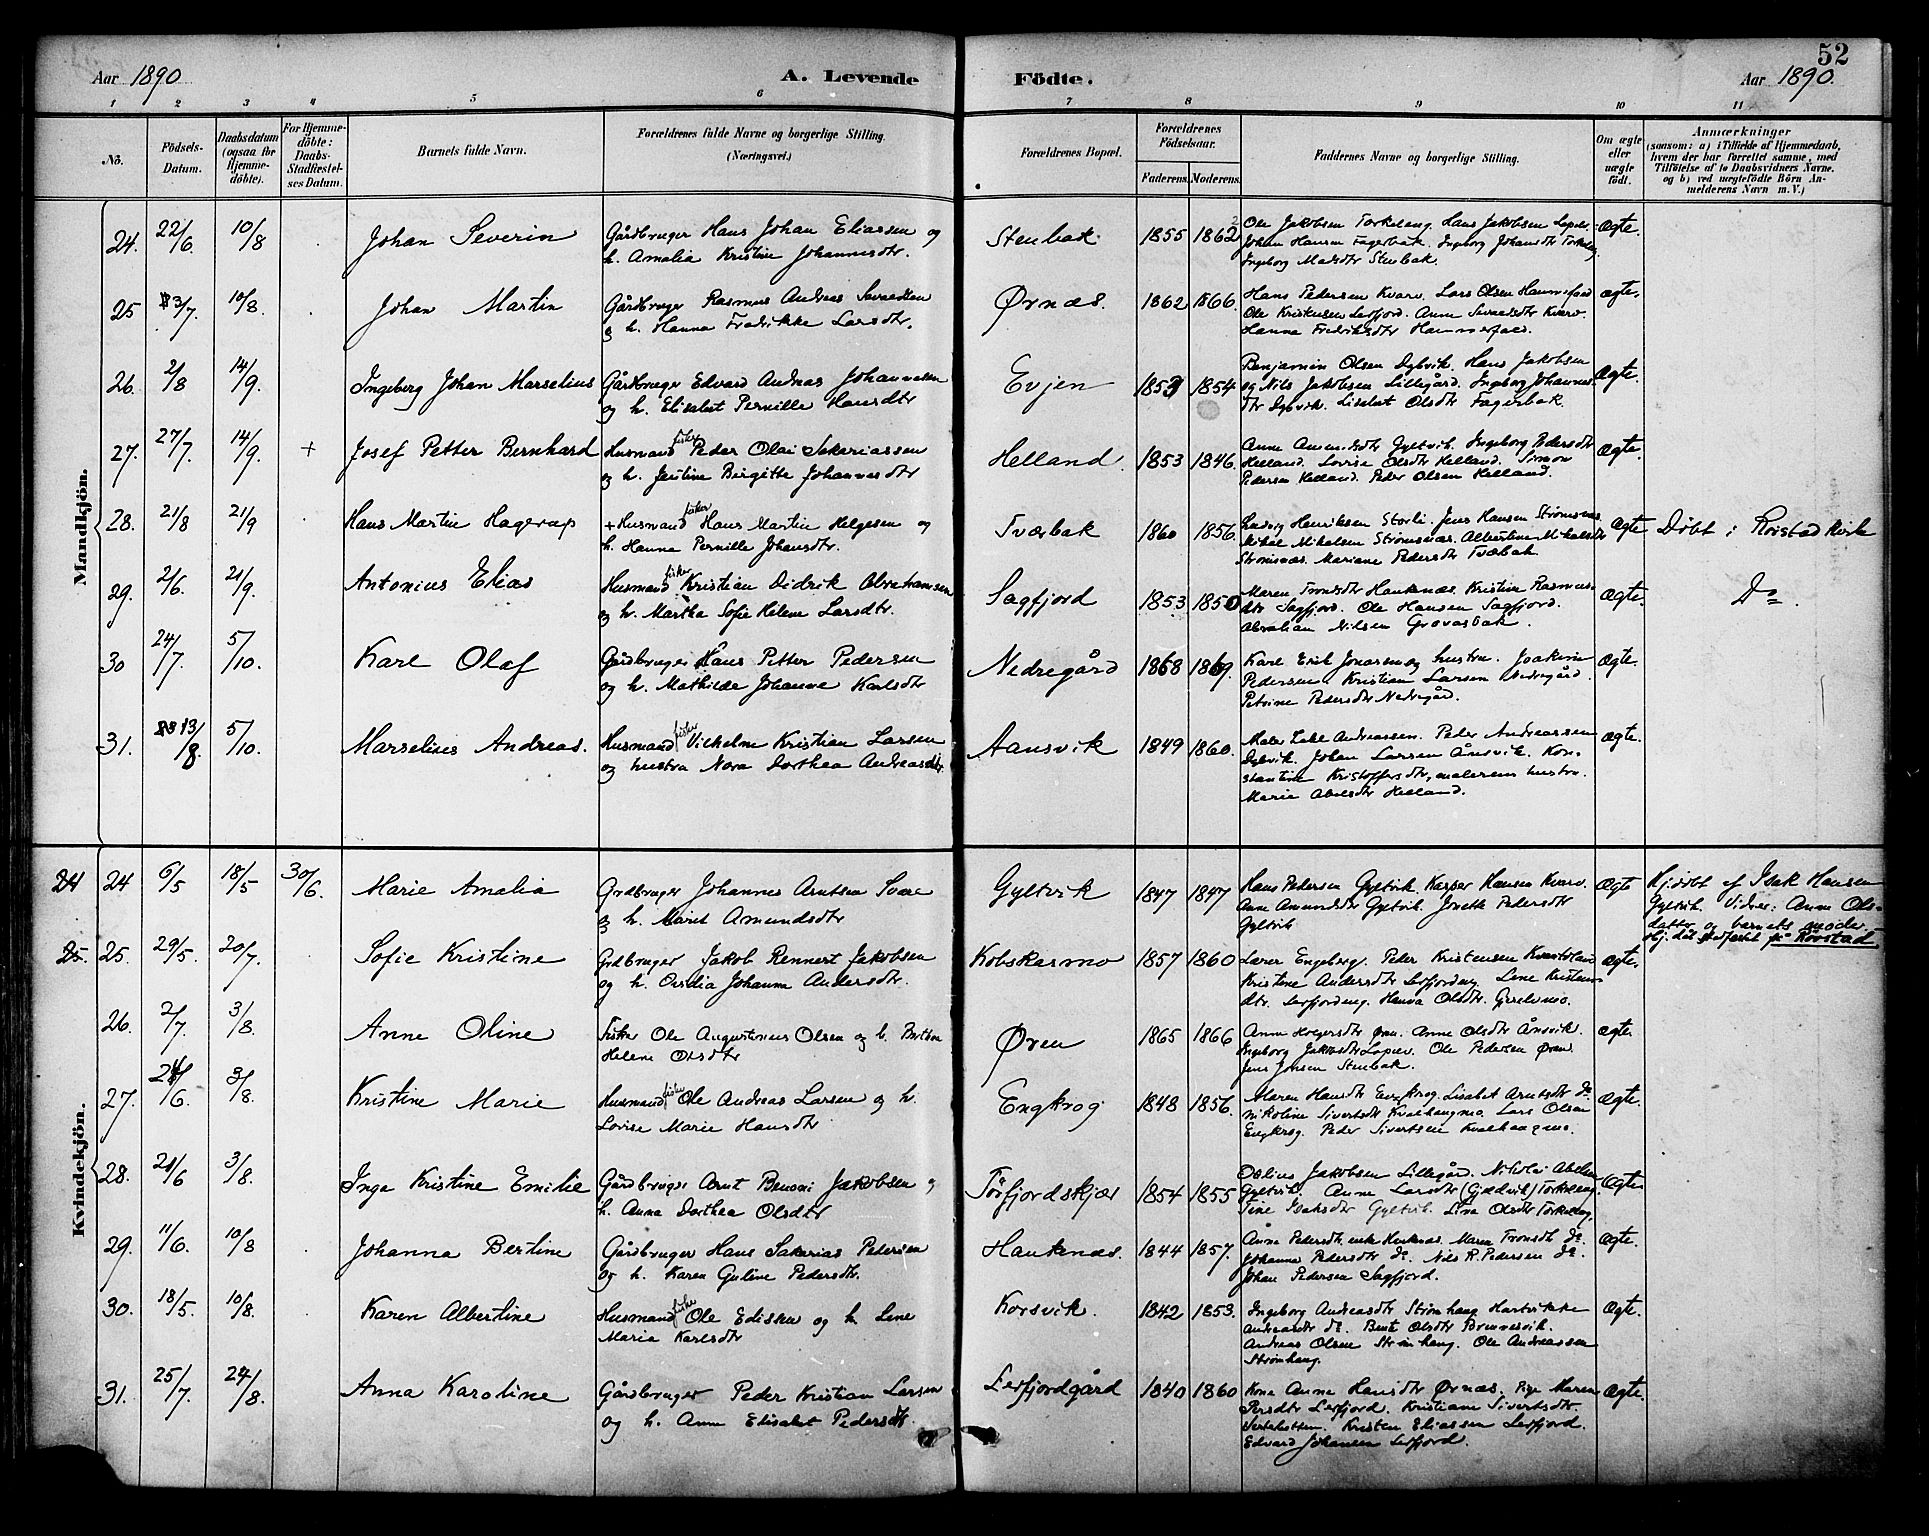 52
Aar 1890
A. Levende
Födte.
Aar 1890.
1 2 3 4 5 6 7 8 9 10 11
No.
Födsels-Datum.
Daabsdatum (ogsaa for Hjemme-döbte).
For Hjemme-döbte: Daabs-Stadfæstel-ses Datum.
Barnets fulde Navn.
Forældrenes fulde Navne og borgerlige Stilling.
(Næringsvei.)
Forældrenes Bopæl.
Forældrenes Födselsaar.
Faderens. Moderens.
Faddernes Navne og borgerlige Stilling.
Om ægte eller uægte födt.
Anmærkninger
(saasom: a) i Tilfælde af Hjemmedaab,
hvem der har forrettet samme, med
Tilföielse af to Daabsvidners Navne.
og b) ved uægtefödte Börn An-
melderens Navn m. V.)
Mandkjön.
24. 22/6 10/8 Johan Severin
Gårdbruger Hans Johan Eliassen og
h. Amalia Kristine Johannesdtr.
Stenbak 1855 1862
Ole Jakobsen Torkeleng. Hans Jakobsen
Johan Hansen Fagerbak. Ingeborg Johansdtr
Ingeborg Madsdtr Stenbak.
Ægte.
25 3/7 10/8. Johan Martin
Gårdbruger Rasmus Andreas
og h. Hanna Fredrikke Larsdtr.
Ørnæs. 1862 1866.
Hans Pedersen Kvarv. Lars Olsen
Ole Kristensen Lerfjord. Anne Kvarv.
Hanna Fredriksdtr
Ægte.
26. 2/8 14/9. Ingeberg Johan Marselius
Gårdbruger Edvard Andreas Johannesen
og h. Elisabet Pernille Hansdtr
Evjen 1853 1854
Benjamin Olsen Dybvik. Hans Jakobsen
og Nils Jakobsen Lillegård. Ingeborg Johannes-
dtr Dybvik. Lisabet Olsdtr Fagerbak.
Ægte.
27. 27/7. 14/9. + Josef Petter Bernhard
Husmand fisker Peder Olai Sakeriassen
og h. Jestine Birgitte Johannesdtr
Helland. 1853 1846.
Anne Amundsdtr Gyltvik. Ingeborg Pedersdtr
Helland. Lovise Olsdtr Helland. Simon
Pedersen Helland. Peder Olsen Helland.
Ægte.
28. 21/8 21/9 Hans Martin Hagerup
+ Husmand fisker Hans Martin Helgesen og
h. Hanna Pernille Johansdtr.
Tverbak 1860 1856.
Ludvig Henriksen Storli. Jens Hansen Strømsnes
Mikal Mikalsen Strømsnæs. Albertine Mikalsdtr
Strømsnæs. Mariane Pedersdtr Tvæbak
Ægte Døbt i Korstad kirke
29. 2/6. 21/9. Antonius Elias
Husmand fisker Kristian Didrik Abrahamsen
og h. Martha Sofie Helene Larsdtr.
Sagfjord 1853 1850
Maren Tronsdtr Hauknæs. Kristine Rasmus-
dtr Sagfjord. Ole Hansen Sagfjord.
Abraham Nilsen Grovasbak.
Ægte. Do.
30 24/7. 5/10. Karl Olaf
Gårdbruger Hans Petter Pedersen
og h. Mathilde Johanne Karlsdtr
Nedregård 1868 1869.
Karl Erik Jonasen og hustru. Joakim
Pedersen Kristian Larsen Nedregård.
Petrine Pedersdtr Nedregård.
Ægte.
31. 13/8. 5/10. Marselius Andreas.
Husmand fisker Vilhelm Kristian Larsen
og hustru Nora Dorthea Andreasdtr.
Aansvik 1849 1860.
Maler Andreassen. Peder Andreassen
Dybvik. Johan Larsen Ånsvik. Kon-
stantine Kristoffersdtr, malerens hustru.
Marie Abelsdtr Helland.
Ægte.
Kvindekjön.
24 24 6/5 18/5 30/6. Marie Amalia
Grdbruger Johannes Arntsen Svare
og h. Maret Amundsdtr
Gyltvik 1847 1847
Hans Pedersen Gyltvik. Kasper Hansen Kvarv.
Ane Amundsdtr Gyltvik. Jonette Pedersdtr
Gyltvik
Ægte
Hjdøbt af Isak Hansen
Gyltvik. Vidner: Anne Ols-
datter og barnets moder.
Hj. dåb stadfæstet på Korstad
25. 25. 29/5. 20/7. Sofie Kristine
Grdbruger Jakob Rennert Jakobsen
og h. Ovidia Johanna Andersdtr.
Kobskarmo 1857 1860
Lærer Engeberg. Peder Kristensen
Kristine Andersdtr Lerfjordeng. Lene Kristens-
dtr. Lerfjordeng. Hanna Olsdtr.
Ægte.
26. 2/7. 3/8. Anne Oline
Fisker Ole Augustinus Olsen og h.
Helene Olsdtr
Øren 1865 1866
Anne Holgersdtr Øren. Anne Olsdtr Ånsvik.
Ingeborg Jakobsdtr Ole Pedersen Øren
Jens Jensen Stenbak.
Ægte.
27. 24/6. 3/8. Kristine Marie
Husmand fisker Ole Andreas Larsen og h.
Lovise Marie Hansdtr.
Engkrog 1848 1856.
Maren Hansdtr Engkrog. Lisabet Arntsdtr do.
Nikoline Sivertsdtr Kvalhaugmo. Lars Olsen
Engkrog. Peder Sivertsen Kvalhaugmo.
Ægte.
28. 21/6 3/8. Inga Kristine Emilie
Gårdbruger Arnt Benoni Jakobsen og
h. Anna Dorthea Olsdtr
Tørfjordskjær 1854 1855
Jakobsen Lillegård. Nikolai Abelsen
Gyltvik. Anne Larsdtr (Gjedvik) Torkeleng.
Tine Isaksdtr Gyltvik. Lina Olsdtr Torkeleng.
Ægte
29. 11/6. 10/8 Johanna Bertine
Gårdbruger Hans Sakarias Pedersen
og h. Karen Guline Pedersdtr.
Hauknæs. 1844 1857.
Anne Pedersdtr. enke Hauknæs. Maren Tronsdtr do.
Johanna Pedersdtr do. Nils R. Pedersen do.
Johan Pedersen Sagfjord.
Ægte.
30. 18/5. 10/8. Karen Albertine
Husmand fisker Ole Edisken og h. Lene
Maria Karlsdtr
Korsvik. 1842 1853.
Ingeborg Andreasdtr Strømhaug Hartvikke
Andreasdtr do. Berit Olsdtr Brunnesvik.
Andreas Olsen Strømhaug. Ole Andreassen
Strømhaug.
Ægte.
31. 25/7. 24/8. Anna Karoline
Gårdbruger Peder Kristian Larsen
og h. Anne Elisabet Pedersdtr.
Lerfjordgård 1840 1860
Kone Anne Hansdtr Ørnæs. Pige Maren
Persdtr Lerfjord. Kristiane Sivertsdtr.
Kristen Eliassen Lerfjord.
Edvard Johansen Lerfjord.
Ægte.